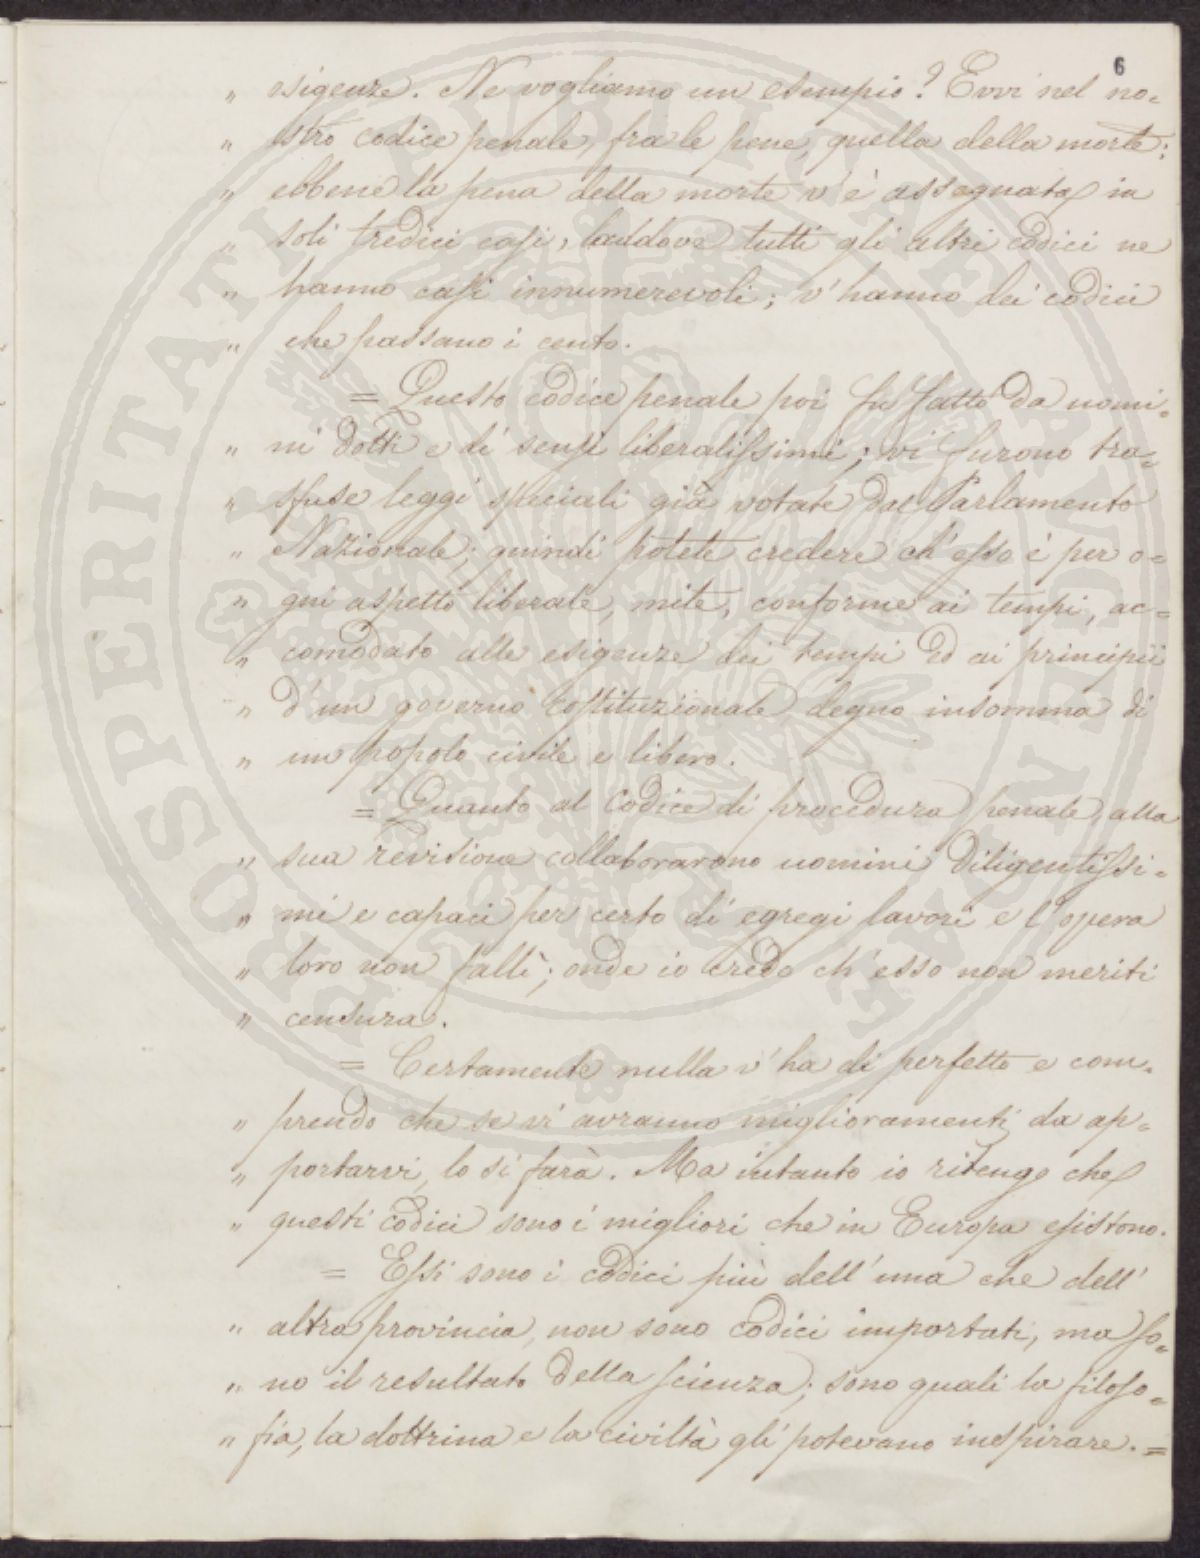 6
„ esigenze. Ne vogliamo un esempio? Evvi nel no=
„ stro codice penale, fra le pene, quella della morte:
„ ebbene la pena della morte v'è assegnata in
„ soli tredici casi, laddove tutti gli altri codici ne
„ hanno casi innumerevoli; v'hanno dei codici
„ che passano i cento.
= Questo codice penale poi fu fatto da uomi=
„ ni dotti e di sensi liberalissimi; vi furono tra=
„ sfuse leggi speciali già votate dal Parlamento
„ Nazionale; quindi potete credere ch'esso è per o=
„ gni aspetto liberale, mite, conforme ai tempi, ac=
„ comodato alle esigenze dei tempi ed ai principii
„ d'un governo costituzionale degno insomma di
„ un popolo civile e libero.
= Quanto al Codice di procedura penale, alla
„ sua revisione collaborarono uomini diligentissi=
„ mi e capaci per certo di egregi lavori e l'opera
„ loro non fallì; onde io credo ch'esso non meriti
„ censura.
= Certamente nulla v'ha di perfetto e com=
„ prendo che se vi avranno miglioramenti da ap=
„ portarvi, lo si farà. Ma intanto io ritengo che
„ questi codici sono i migliori che in Europa esistono.
= Essi sono i codici più dell'una che dell'
„ altra provincia, non sono codici importati, ma so=
„ no il resultato della scienza; sono quali la filoso=
„ fia, la dottrina e la civiltà gli potevano inspirare. =
PROSPERITATI PUBLICAE